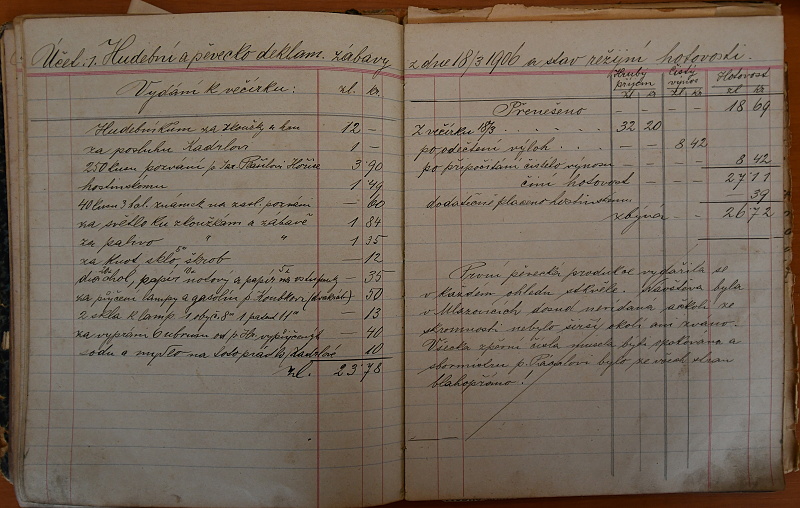 Účet: 1. Hudební a pěvecko deklam. zábavy z dne 18/3 1906 a stav režijní hotovosti.
Vydání k večírku: zl. kr.
Hudebníkům za zkoušky a hru 12 –
za posluhu Kadrlovi 1 –
250 kusů pozvání p. Hořice 3 90
hostinskému 1 49
40 kusů 3 hal. známek na zasl. pozvání – 60
za světlo ku zkouškám a zábavě 1 84
za palivo " " 1 35
za knot sklo, škrob – 12
papír notový a papír na vstupenky – 35
za půjčení lampy a gasolin p. 50
2 skla k lamp. 1 obyč. 8''' 1 patent 11''' – 13
za vyprání 6 ubrusů od p. vypůjčených 40
sodu a mýdlo na toto prádlo, Kadrlové 10
zl. 23 78
Hrubý příjem Čistý výnos Hotovost
zl kr zl kr zl kr
Přenešeno – – – – 18 69
Z večírku 18/3 . . . . . . . 32 20
po odečtení výloh . . . – – 8 42
po připočítání čistého výnosu – – – – 8 42
činí hotovost – – – – 27 11
dodatečně placeno hostinskému 39
zbývá – – 26 72
První pěvecká produkce vydařila se
v každém ohledu skvěle. Návštěva byla
v Mlázovicích dosud nevídaná ačkoli ze
skromnosti nebylo širší okolí ani zváno.
Všecka zpěvní čísla musela být opakována a
sbormistru p. Fágalovi bylo ze všech stran
blahopřáno.